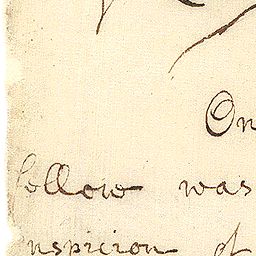 On
fellow was
uspicion of